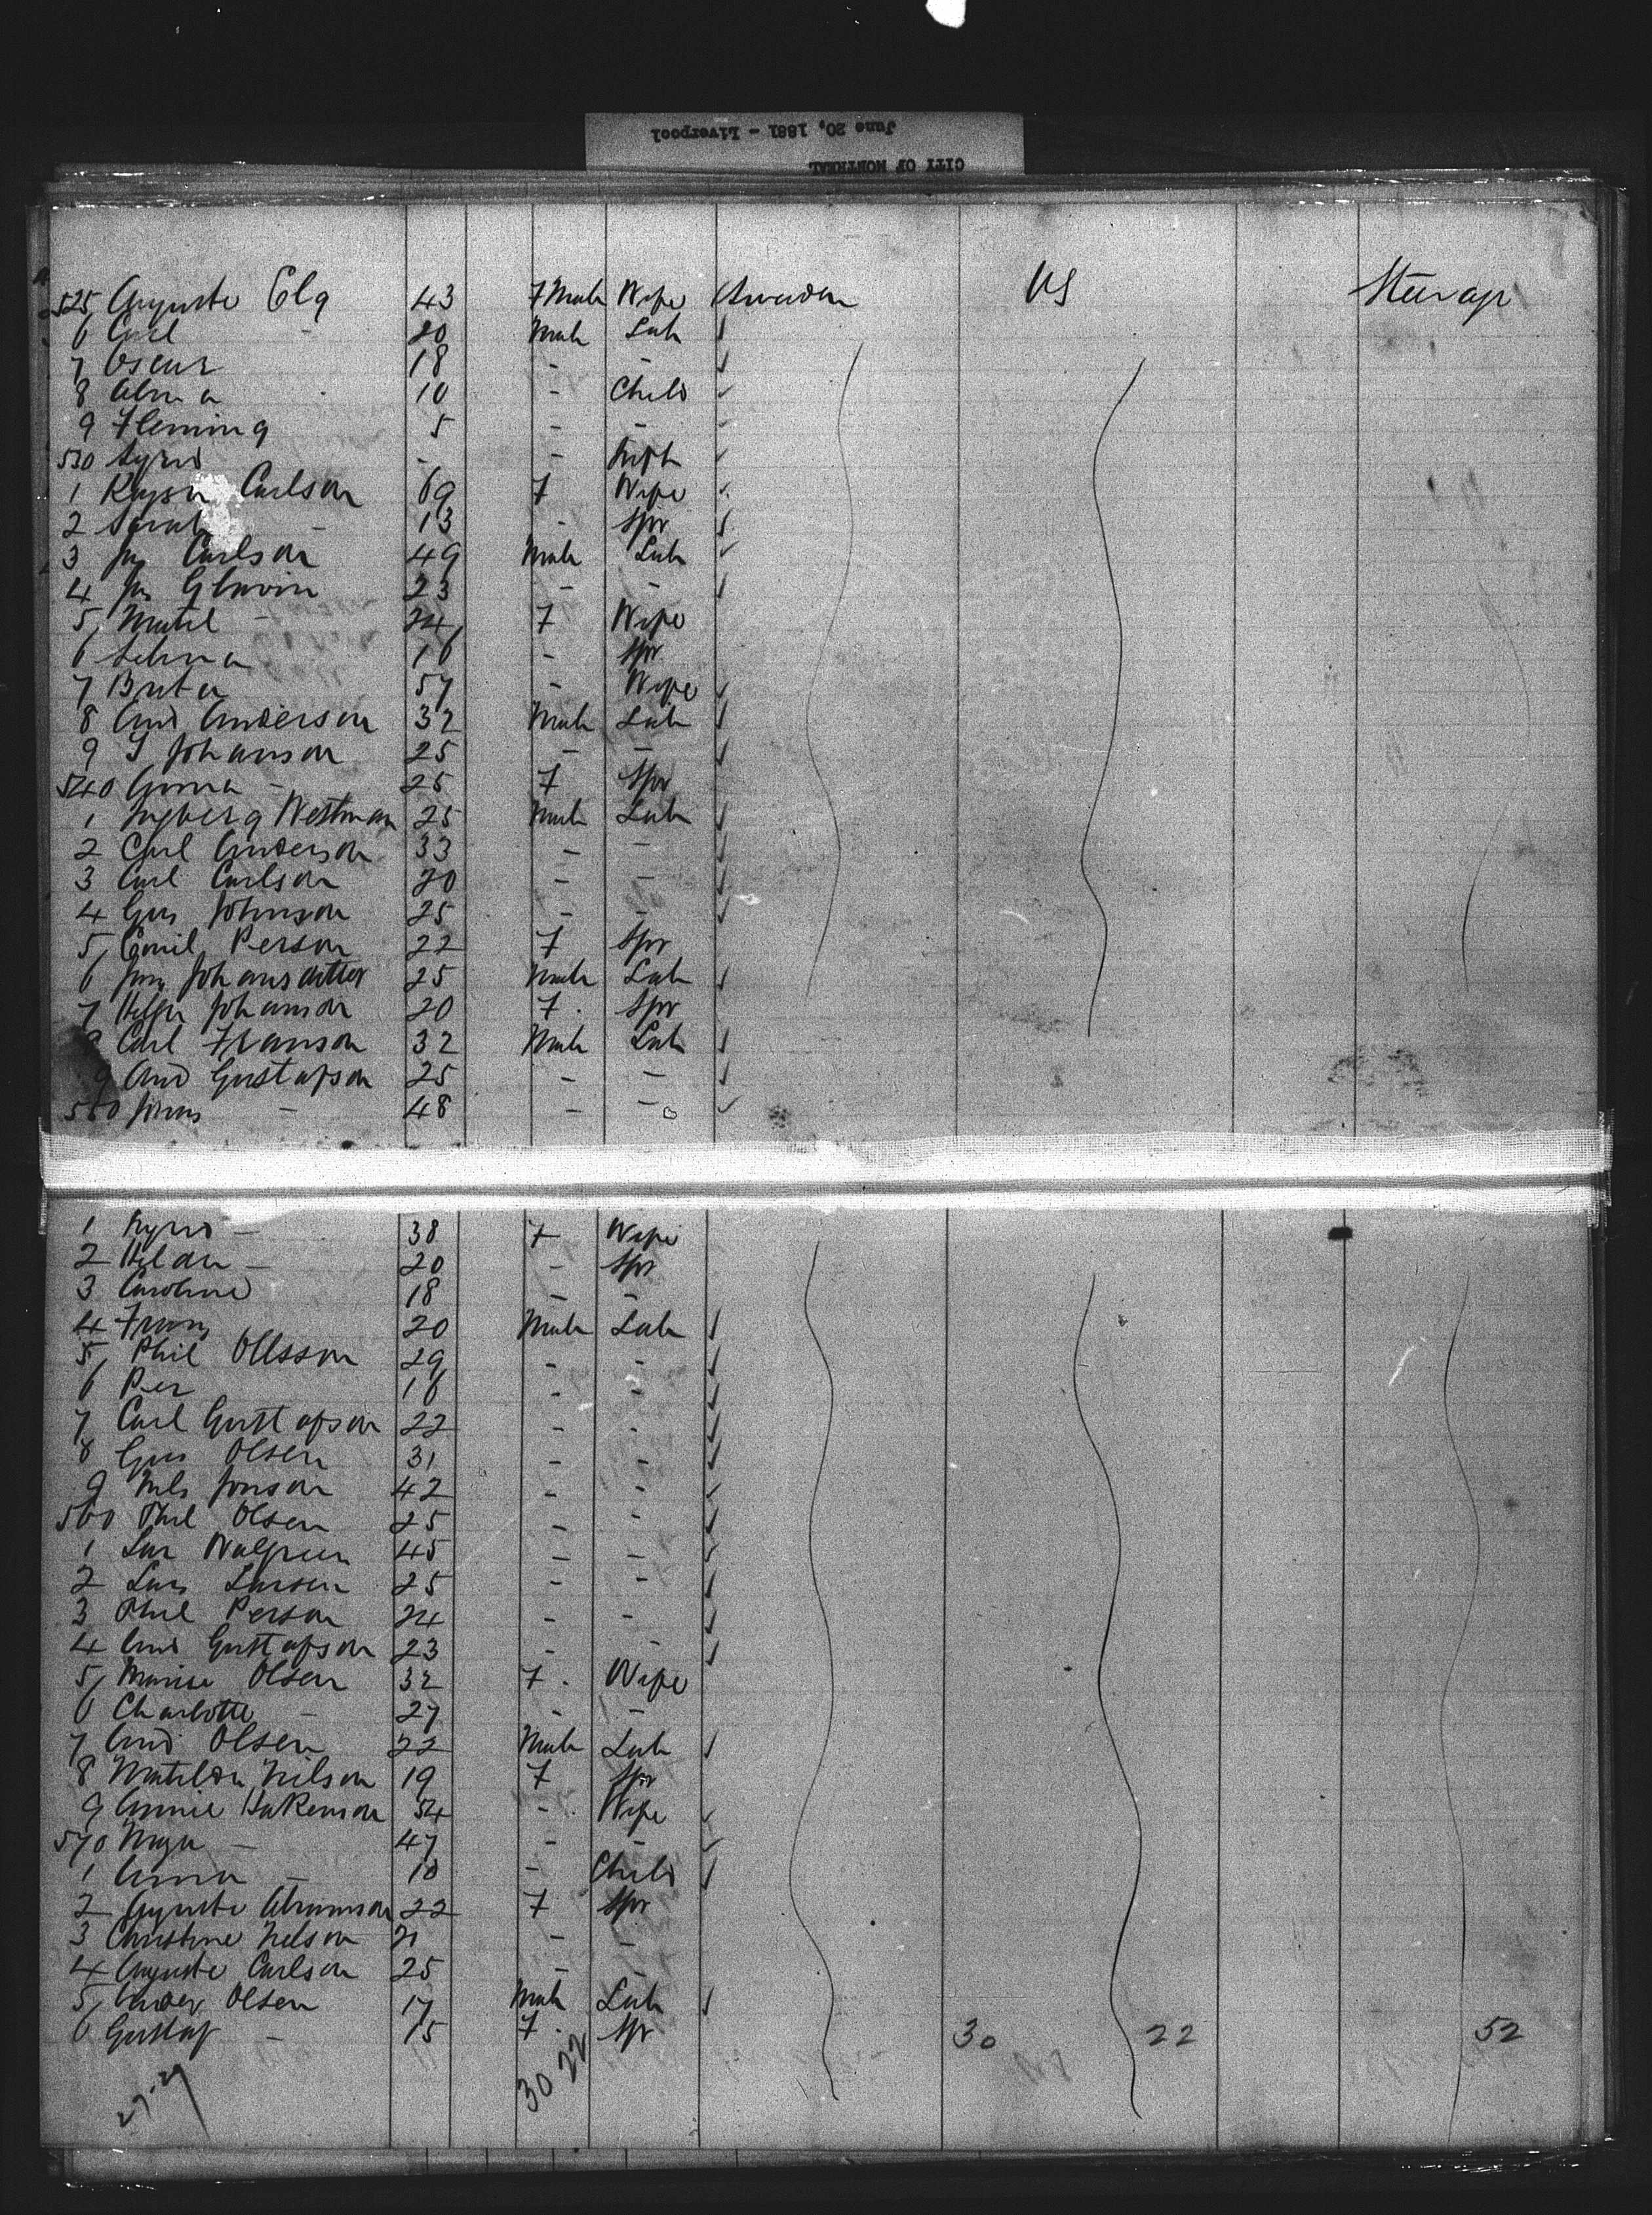 June 20, 1881 - Liverpool
CITY OF MONTREAL
525 Auguste Elg 43 Male Wife Sweden US Steerage
6 Carl 20 Male Lab
7 Oscar 18 - -
8 Alma 10 - Child
9 Fleming 5 - -
530 - -
1 Carlson 69 F Wife
2 Sarah - 13 - Spr
3 Carlson 49 Male Lab
4 23 - -
5 - 24 F Wife
6 Selma 16 - Spr
7 57 - Wife
8 And Anderson 32 Male Lab
9 Johanson 25 - -
540 Anna - 25 F Spr
1 Ingberg Westman 25 Male Lab
2 Carl Anderson 33 - -
3 Carl Carlson 20 - -
4 Gus Johnson 25 - -
5 Emil Person 22 F Spr
6 25 Male Lab
7 Johanson 20 F Spr
8 Carl Franson 32 Male Lab
9 And Gustafson 25 - -
550 Jonas - 48 - -
1 - 38 F Wife
2 - 20 - Spr
3 Caroline 18 - -
4 Frans 20 Male Lab
5 Phil Ollsson 29 - -
6 Per 16 - -
7 Carl Gustafson 22 - -
8 Gus Olsen 31 - -
9 Nels Jonson 42 - -
560 Phil Olsen 25 - -
1 45 - -
2 Lars Larsen 25 - -
3 Phil Person 24 - -
4 And Gustafson 23 - -
5 Olsen 32 F Wife
6 Charlotte - 27 - -
7 And Olsen 22 Male Lab
8 Matilda Nilson 19 F Spr
9 Annie Hakenson 54 - Wife
570 - 47 - -
1 Anna - 10 - Child
2 Auguste 22 F Spr
3 Christine Nelson 21 - -
4 Auguste Carlson 25 - -
5 Olsen 17 Male Lab
6 Gustaf - 15 F Spr 30 22 52
30 22